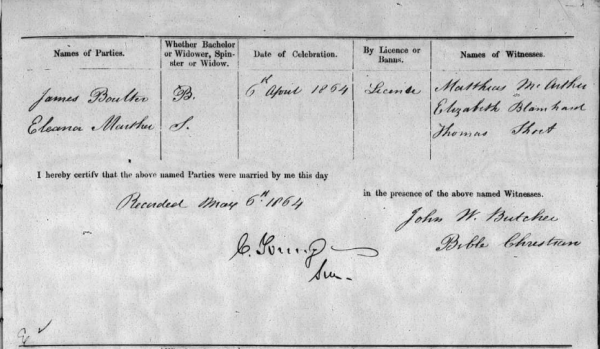 Names of Parties.
Whether Bachelor or Widower, Spinster or Widow.
Date of Celebration.
By Licence or Banns.
Names of Witnesses.
James Boulter B. 6th April 1864 License Matthew McArther
Elizabeth Blanchard
Eleana Marther S. Thomas Short
I hereby certify that the above named Parties were married by me this day
in the presence of the above named Witnesses.
Recorded May 6th 1864
John W. Butcher
Bible Christian
C. Young